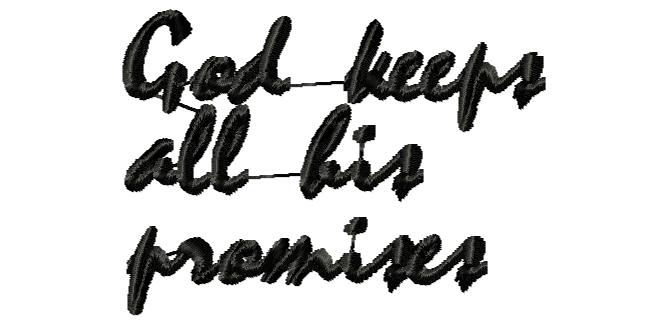 God keeps
all his
promises